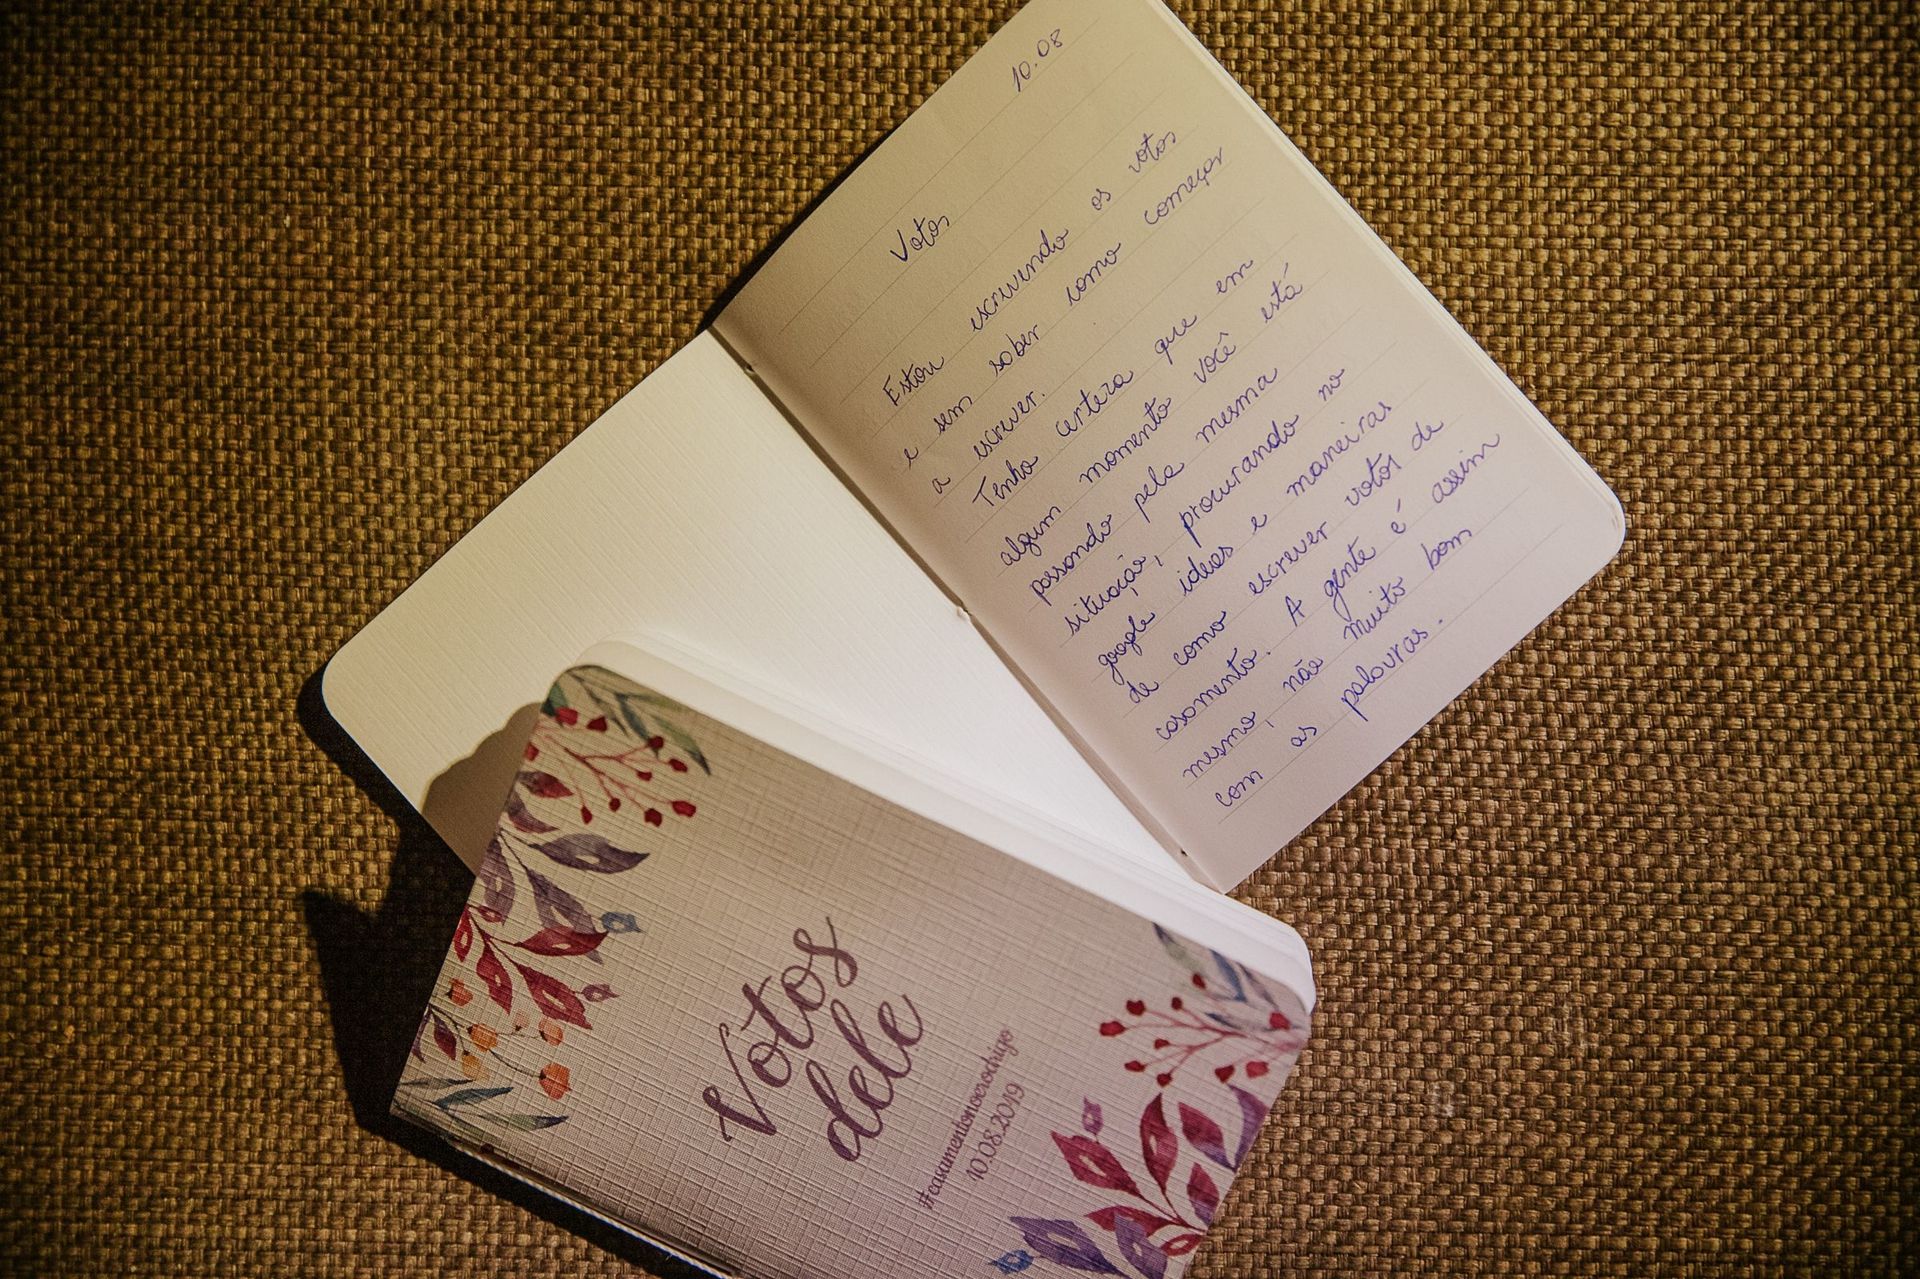 10.08
Votos
Estou escrevendo os votos
e sem saber como começar
a escrever.
Tenho certeza que em
algum momento você está
passando pela mesma
situação, procurando no
google ideias e maneiras
de como escrever votos de
casamento. A gente é assim
mesmo, não muito bom
com as palavras.
Votos
dele
10.08.2019